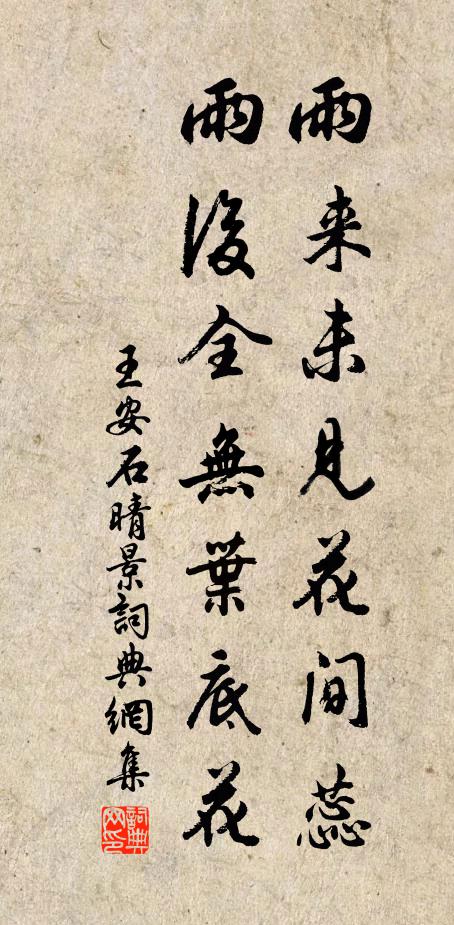 雨来未見花間蕊
雨後全無葉底花
王安石晴景詞典網集
詞典網印